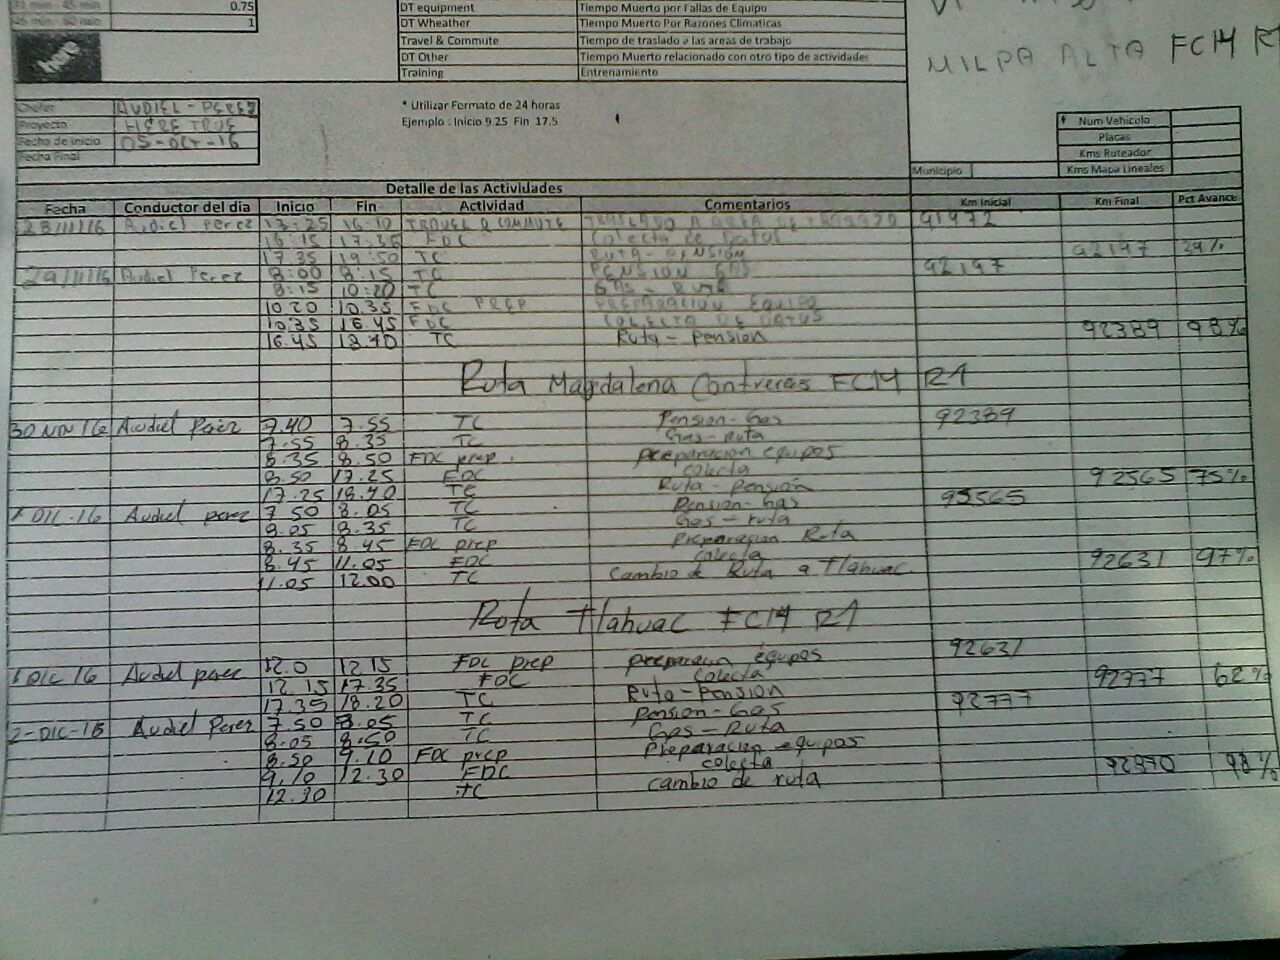 31 min - 45 min 0.75
46 min - 60 min 1
DT equipment Tiempo Muerto por Fallas de Equipo
DT Wheather Tiempo Muerto Por Razones Climaticas
Travel & Commute Tiempo de traslado a las areas de trabajo
DT Other Tiempo Muerto relacionado con otro tipo de actividades
Training Entrenamiento
MILPA ALTA FC14 R1
Chofer AUDIEL - PEREZ
Proyecto HERE TRUE
Fecha de inicio 05-OCT-16
Fecha Final
* Utilizar Formato de 24 horas
Ejemplo : Inicio 9.25 Fin 17.5
Num Vehiculo
Placas
Kms Ruteador
Municipio Kms Mapa Lineales
Detalle de las Actividades
Fecha Conductor del dia Inicio Fin Actividad Comentarios Km Inicial Km Final Pct Avance
28/11/16 Audiel Perez 13:25 16:10 TRAVEL & COMMUTE TRASLADO A AREA DE TRABAJO 91972
16:15 17:35 FDC Colecta de Datos
17.35 19:50 TC RUTA-PENSION 92197 39%
29/11/16 Audiel Perez 8:00 8:15 TC PENSION GAS 92197
8:15 10:20 TC GAS - RUTA
10.20 10.35 FDC PREP PREPARACION EQUIPO
10.35 16.45 FDC COLECTA DE DATOS
16.45 18.40 TC Ruta - Pension 92389 98%
Ruta Magdalena Contreras FC14 R1
30 NOV 16 Audiel Perez 7.40 7.55 TC Pension-Gas 92389
7.55 8.35 TC Gas-Ruta
8.35 8.50 FDC prep. preparacion equipos
8.50 17.25 FDC colecta
17.25 18.40 TC Ruta-pensión 92565 75%
1 DIC-16 Audiel perez 7.50 8.05 TC Pension-Gas 92565
8.05 8.35 TC Gas-ruta
8.35 8.45 FDC prep preparacion Ruta
8.45 11.05 FDC colecta
11.05 12.00 TC Cambio de Ruta a Tlahuac. 92631 97%
Ruta Tlahuac FC14 R1
1 DIC 16 Audiel perez 12.0 12.15 FDC prep preparacion equipos 92631
12.15 17.35 FDC colecta
17.35 18.20 TC Ruta-Pension 92777 62%
2-DIC-16 Audiel Perez 7.50 8.05 TC Pension-Gas 92777
8.05 8.50 TC Gas-Ruta
8.50 9.10 FDC prep Preparacion equipos
9.10 12.30 FDC colecta
12.30 TC cambio de ruta 92870 98%